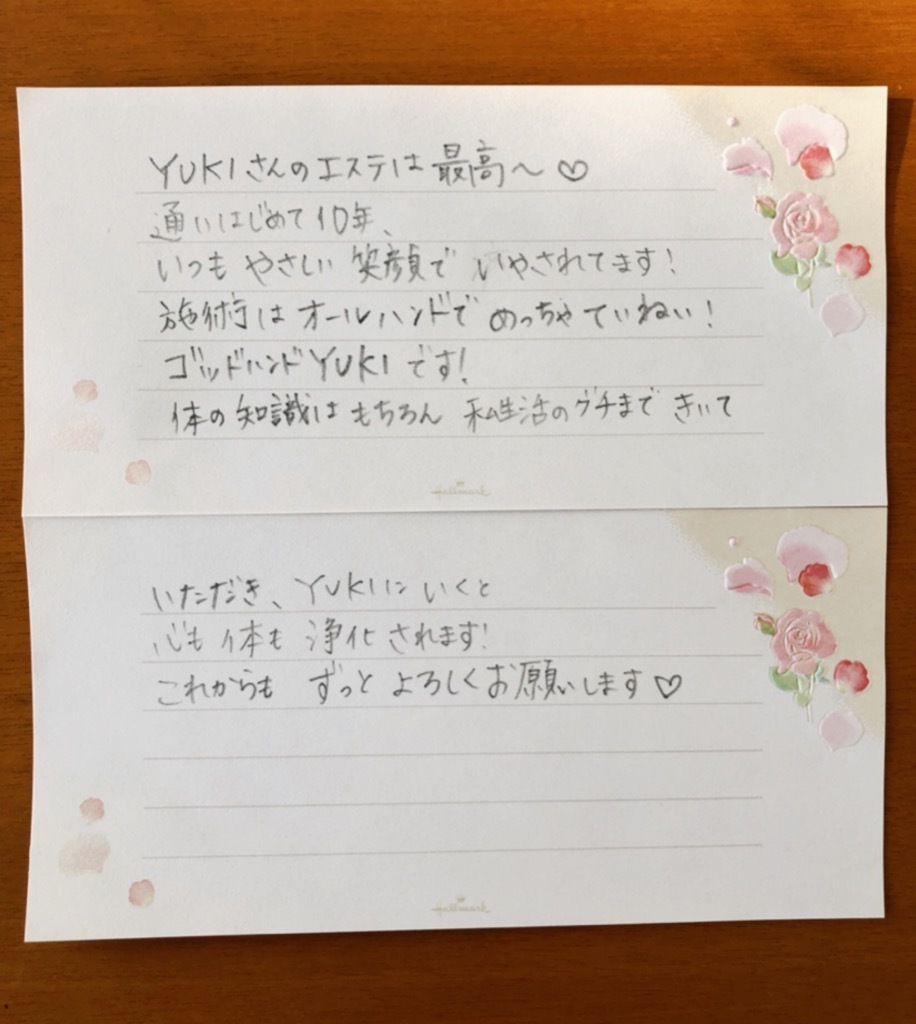 YUKIさんのエステは最高〜♡
通いはじめて10年、
いつも やさしい 笑顔で いやされてます!
施術は オールハンドで めっちゃていねい!
ゴッドハンドYUKIです!
体の知識は もちろん 私生活のグチまで きいて
Hallmark
いただき、YUKIに いくと
心も 体も 浄化されます!
これからも ずっと よろしくお願いします♡
Hallmark